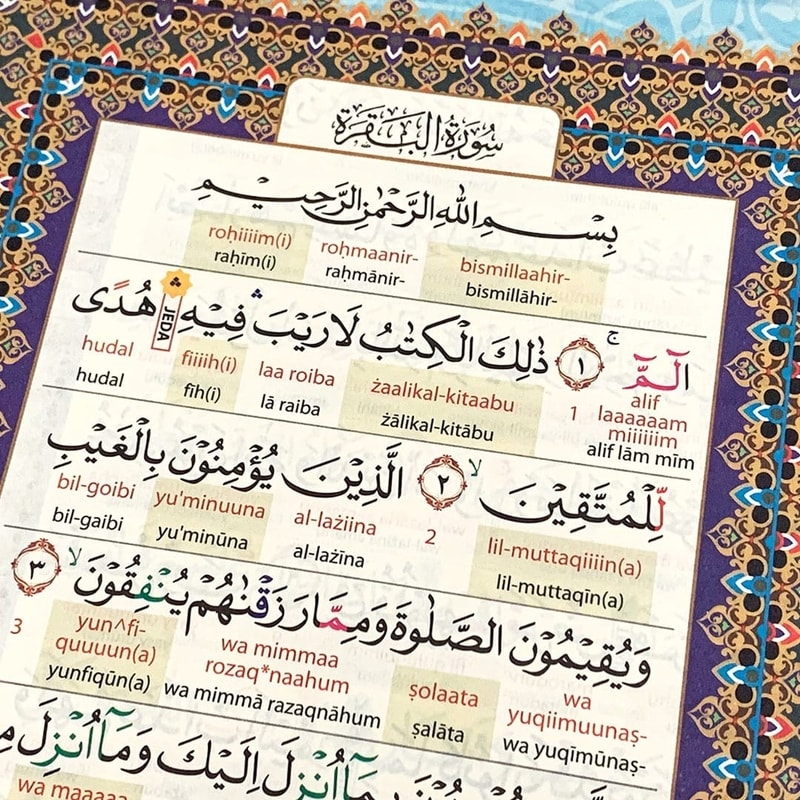 سُورَةُ الْبَقَرَةِ
بِسْمِ اللّٰهِ الرَّحْمٰنِ الرَّحِيْمِ
bismillaahir- roḥmaanir- roḥiiiim(i)
bismillāhir- raḥmānir- raḥīm(i)
الۤمّۤ ۚ ١ ذٰلِكَ الْكِتٰبُ لَا رَيْبَ ۛ فِيْهِ ۛ هُدًى
JEDA
alif laaaaaam miiiiiim 1 żaalikal-kitaabu laa roiba fiiiih(i) hudal
alif lām mīm żālikal-kitābu lā raiba fīh(i) hudal
لِّلْمُتَّقِيْنَ ۙ ٢ الَّذِيْنَ يُؤْمِنُوْنَ بِالْغَيْبِ
lil-muttaqiiiin(a) 2 al-lażiina yu'minuuna bil-goibi
lil-muttaqīn(a) al-lażīna yu'minūna bil-gaibi
وَيُقِيْمُوْنَ الصَّلٰوةَ وَمِمَّا رَزَقْنٰهُمْ يُنْفِقُوْنَ ۙ ٣
wa yuqiimuunaṣ- ṣolaata wa mimmaa rozaq*naahum yun^fi-quuuun(a) 3
wa yuqīmūnaṣ- ṣalāta wa mimmā razaqnāhum yunfiqūn(a)
بِمَآ اُنْزِلَ اِلَيْكَ وَمَآ اُنْزِلَ
wa maaaaa